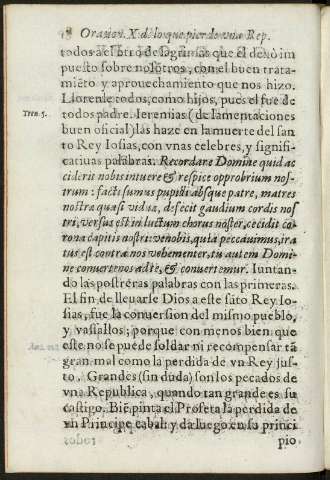 Oracion. X. de lo que pierde vna Rep.
todos a el otro de lagrimas que el dexò im
puesto sobre nosotros, con el buen trata-
miẽto y aprouechamiento que nos hizo.
Llorenle todos, como hijos, pues el fue de
todos padre. Ieremias (de lamentaciones
Tren. 5.
buen oficial) las haze en la muerte del san
to Rey Iosias, con vnas celebres, y signifi-
catiuas palabras. Recordare Domine quid ac
ciderit nobis intuere & respice opprobrium nos-
trum: facti sumus pupilli absque patre, matres
nostræ quasi viduæ, defecit gaudium cordis nos
tri, versus est in luctum chorus noster, cecidit co
rona capitis nostri: væ nobis, quia peccauimus, ira
tus est contra nos vehementer, tu autem Domi-
ne conuerte nos ad te, & conuertemur. Iuntan-
do las postreras palabras con las primeras.
El fin de lleuarle Dios a este sãto Rey Io-
sias, fue la conuersion del mismo pueblo,
y vassallos; porque con menos bien que
este no se puede soldar ni recompensar tã
gran mal como la perdida de vn Rey jus-
to. Grandes (sin duda) son los pecados de
vna Republica, quando tan grande es su
castigo. Biẽ pinta el Profeta la perdida de
vn Principe cabal: y da luego en su princi
pio